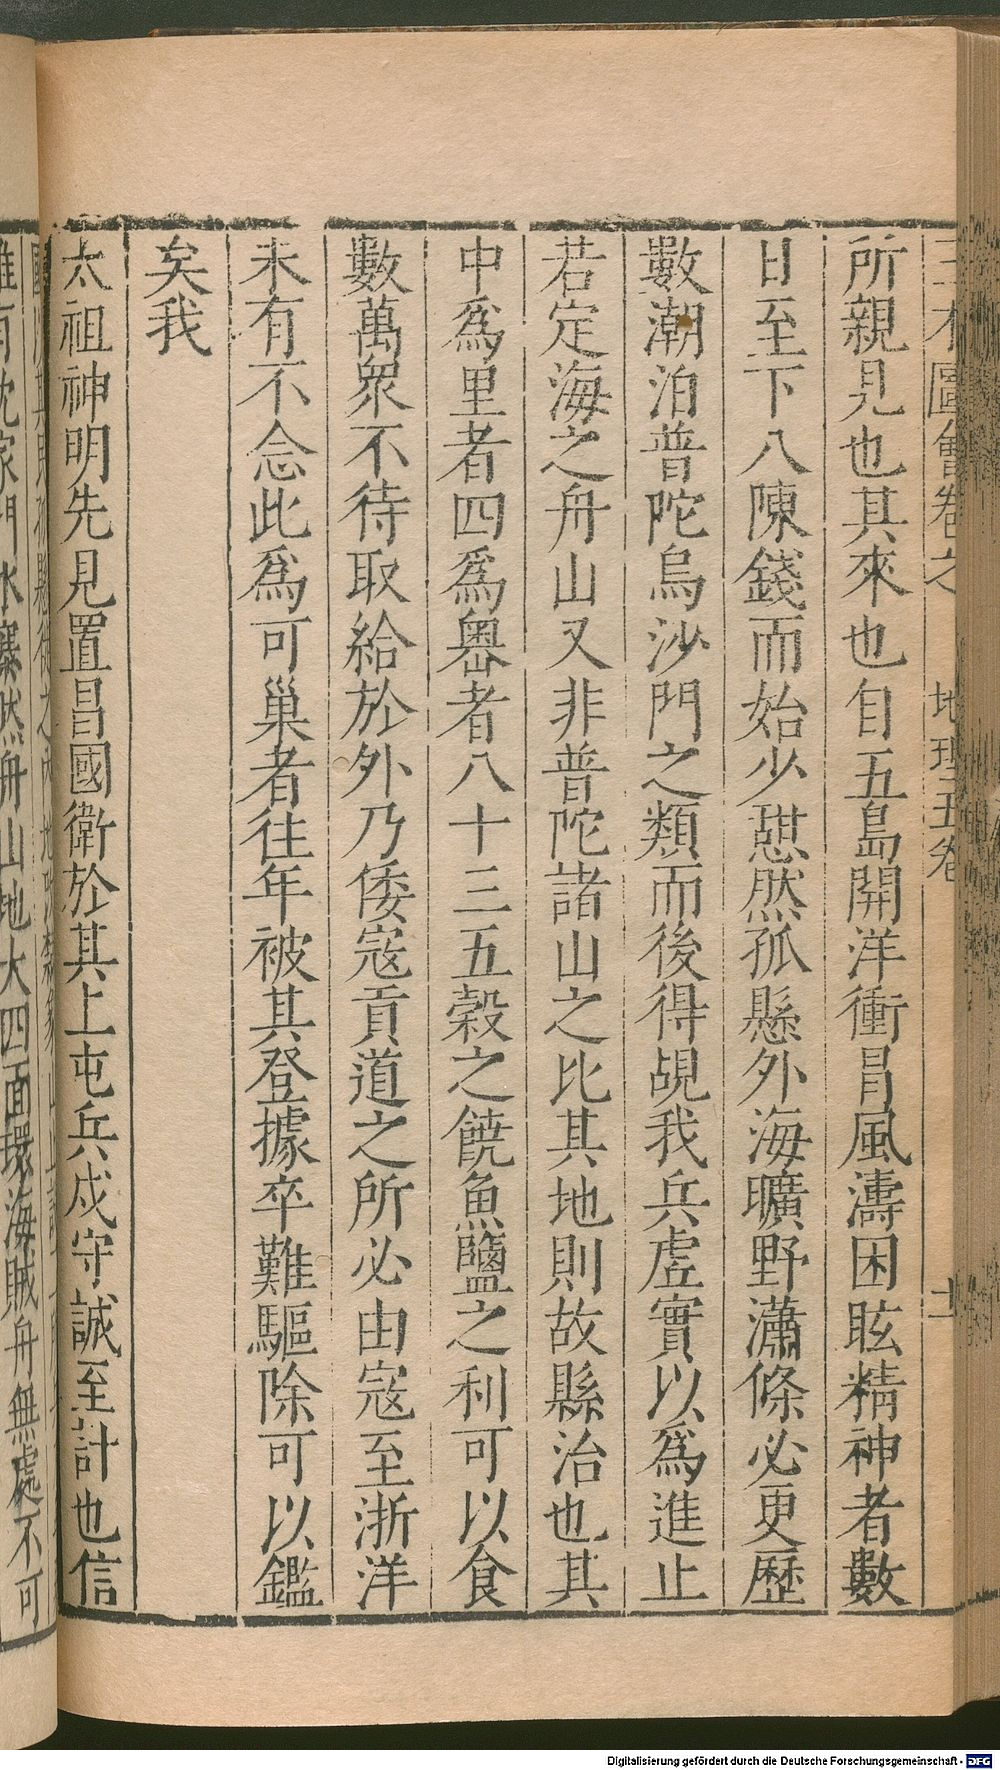 三才圖會卷之 地理五卷 十
所親見也其來也自五島開洋衝冒風濤困眩精神者數
日至下八陳錢而始少憇然孤懸外海曠野瀟條必更歷
數潮泊普陀烏沙門之類而後得覘我兵虛實以爲進止
若定海之舟山又非普陀諸山之比其地則故縣治也其
中爲里者四爲嶴者八十三五穀之饒魚鹽之利可以食
數萬衆不待取給於外乃倭寇貢道之所必由寇至浙洋
未有不念此爲可巢者往年被其登據卒難驅除可以鑑
矣我
太祖神明先見置昌國衛於其上屯兵戍守誠至計也信
有沈家門水寨然舟山地大四面環海賊舟無處不可
Digitalisierung gefördert durch die Deutsche Forschungsgemeinschaft - DFG